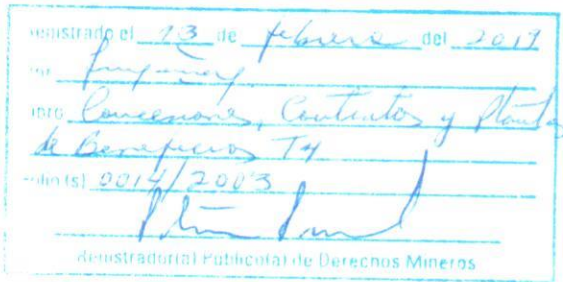 egistrado el 13 de febrero del 2019
por
ibro Concesiones, Contratos y Plantas
de Beneficios T4
olio (s) 0014/2003
Registrador(a) Publico(a) de Derechos Mineros